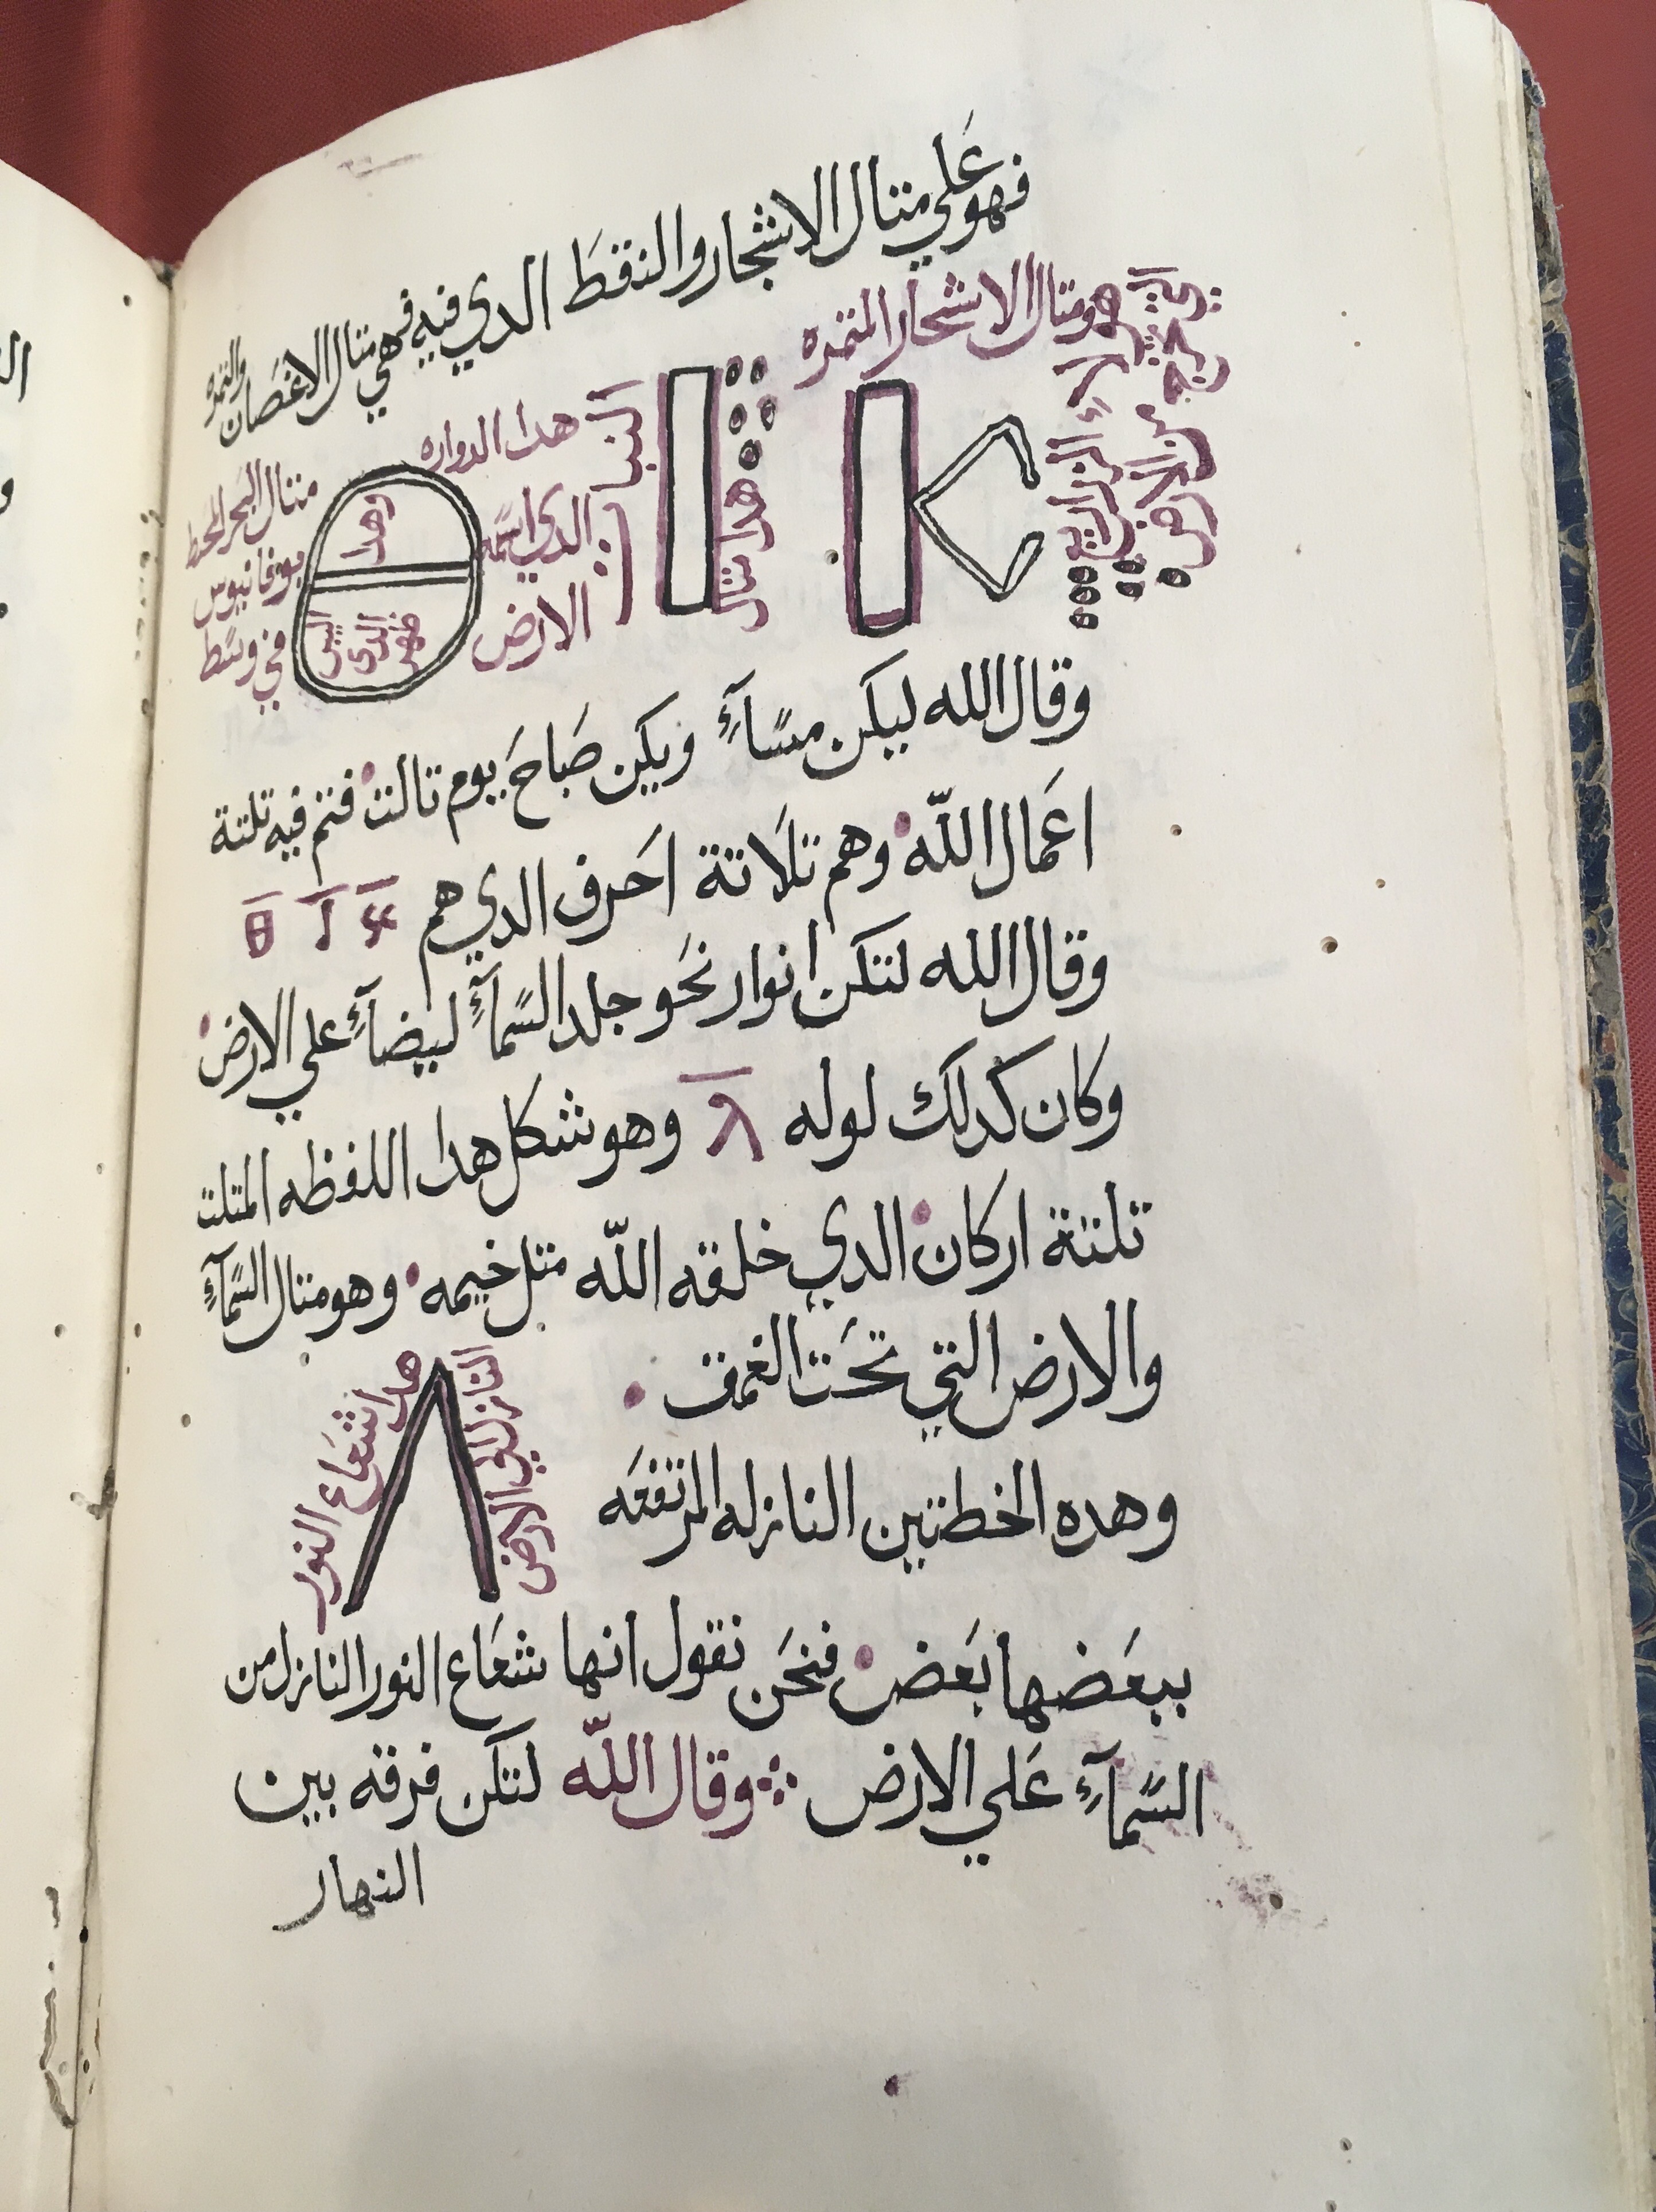 فهو علي متال الاشجار والنقط الدي فيه فهي متال الاغصان والتمره
هو متال الاشجار المتمره
هدا متال
النبا
ت
هدا الدواره
الدي اسمه
الارض
وهدا
اليبس
الدي
ظهر
متال البحر المحيط
في وسط
وقال الله ليكن مسَآءٍ ويكن صَباحَ يوم تالت فتم فيه تلتة
اعَمال اللّه وهم تلَاتة احَرف الدي هم Ⲕ Ⲓ Ⲑ
وقال الله لتكن انوار نحَو جلد السَمآءٍ ليضآءٍ علي الارض
وكان كدلك لوله ⲗ وهو شكل هدا اللفظه المتلت
تلتة اركان الدي خلقه اللّه متل خيمه وهو متال السَمآءٍ
والارض التي تحَت الغمق
وهده الخطتين النازله المرتفعَه
هدا شعَاع النور
النازل علي الارض
ببعَضها بعَض فنحَن نقول انها شعَاع النور النازل من
السَمآءٍ عَلي الارض وقال اللّه لتكن فرقه بين
النهار